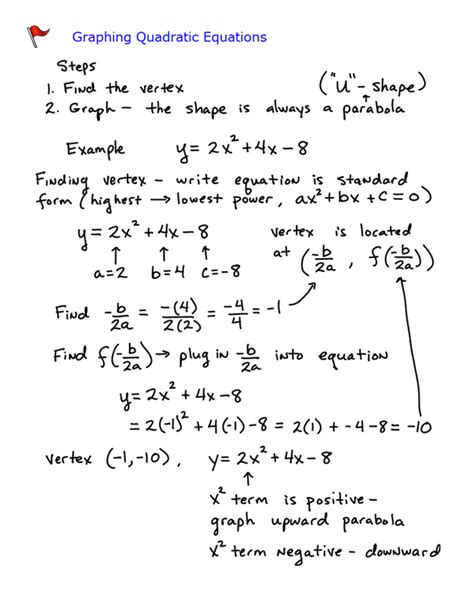 Graphing Quadratic Equations
Steps
1. Find the vertex
("U" - shape)
2. Graph - the shape is always a parabola
Example y = 2x² + 4x - 8
Finding vertex - write equation is standard
form (highest → lowest power, ax² + bx + c = 0)
y = 2x² + 4x - 8
↑ ↑ ↑
a=2 b=4 c=-8
vertex is located
at (-b/2a, f(-b/2a))
Find -b/2a = -(4)/2(2) = -4/4 = -1
Find f(-b/2a) → plug in -b/2a into equation
y = 2x² + 4x - 8
= 2(-1)² + 4(-1) - 8 = 2(1) + -4 - 8 = -10
vertex (-1,-10), y = 2x² + 4x - 8
↑
x² term is positive -
graph upward parabola
x² term negative - downward